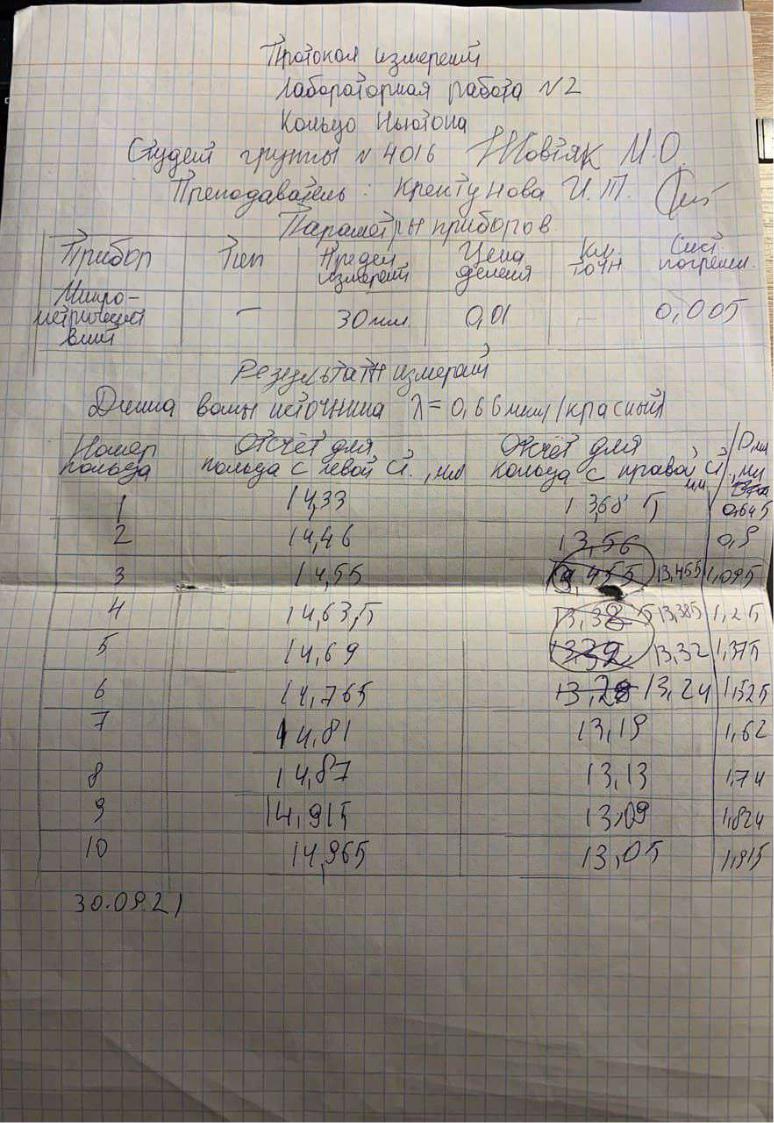 Протокол измерений
Лабораторная работа №2
Кольцо Ньютона
Студент группы №4016 Жовтяк М.О.
Преподаватель: Крептунова И.П.
Параметры приборов
Прибор Тип Предел измерений Цена деления Кл. точн Сист. погрешн.
Микрометрический винт — 30 мм 0,01 — 0,005
Результаты измерений
Длина волны источника λ = 0,66 мкм (красный)
Номер кольца Отсчёт для кольца с левой ст., мм Отсчёт для кольца с правой ст., мм D, мм
1 14,33 13,685 0,645
2 14,46 13,56 0,9
3 14,55 13,455 13,455 1,095
4 14,635 13,385 13,385 1,25
5 14,69 13,32 1,375
6 14,765 13,24 1,525
7 14,81 13,19 1,62
8 14,87 13,13 1,74
9 14,915 13,09 1,824
10 14,965 13,05 1,915
30.09.21